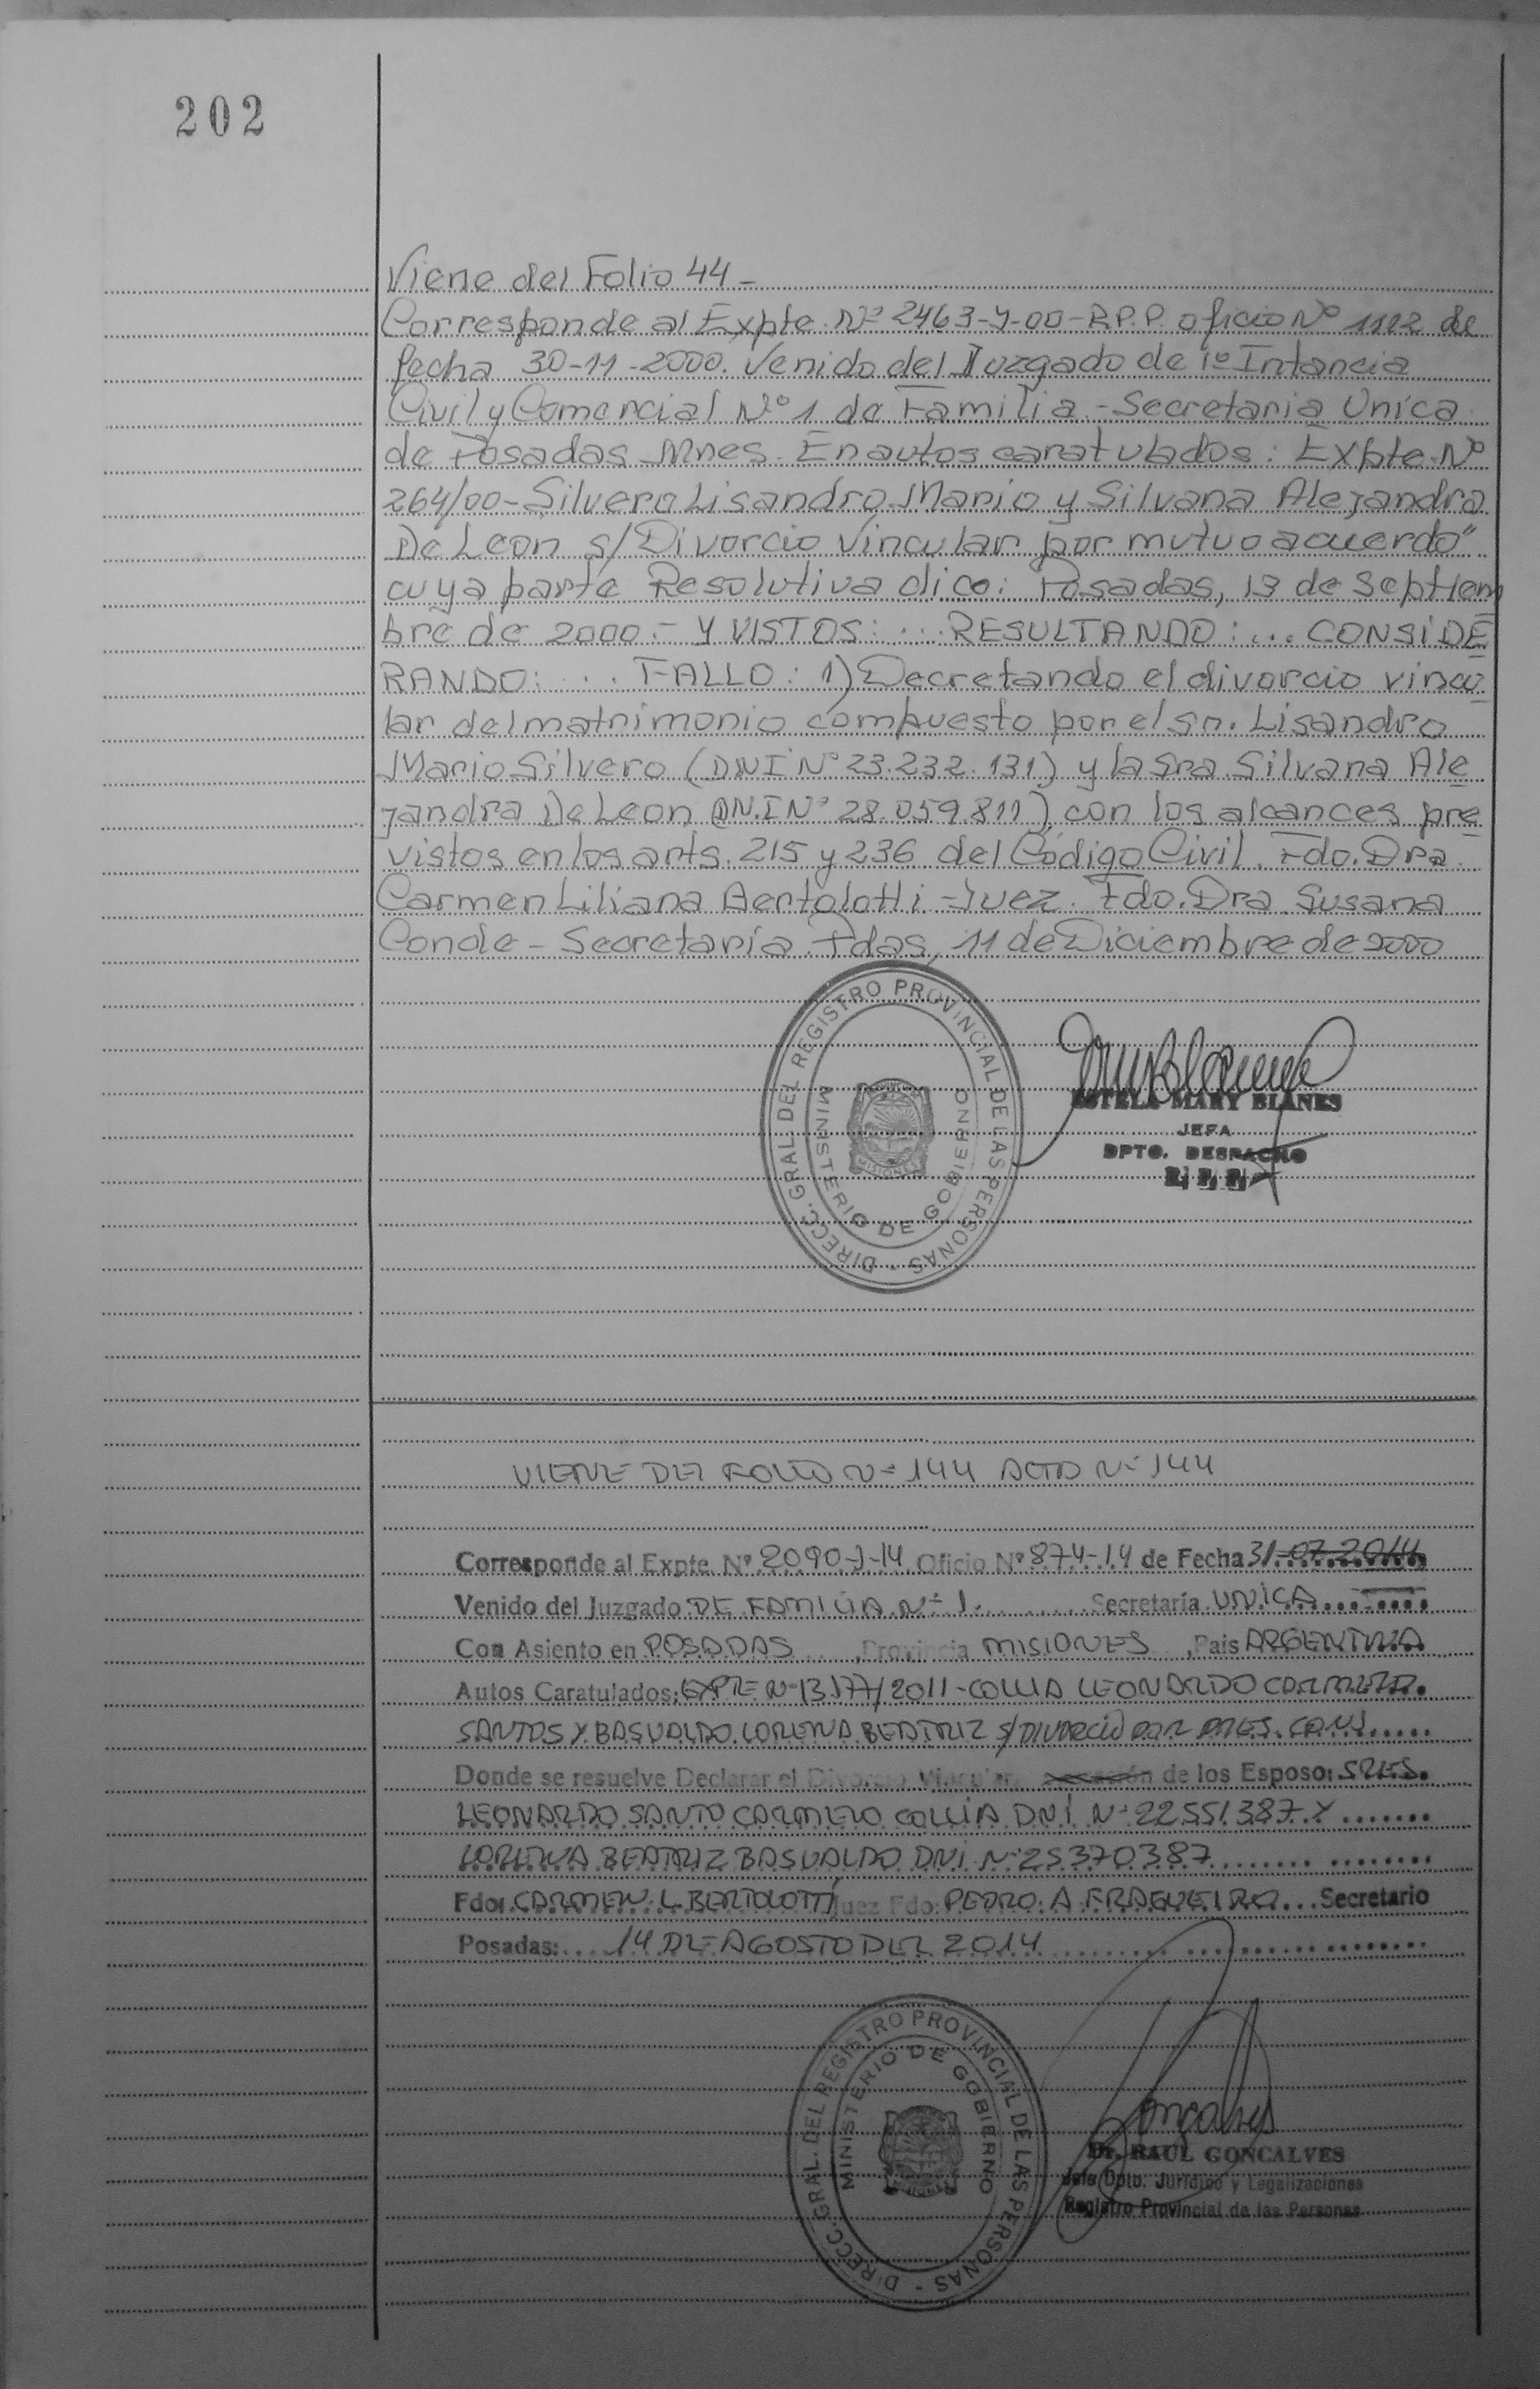 202
Viene del Folio 44-
Corresponde al Expte Nº 2463-Y-00-R.P.P. oficio Nº 1102 de
fecha 30-11-2000. Venido del Juzgado de 1º Intancia
Civil y Comercial Nº 1 de Familia - Secretaria Unica
de Posadas Mnes. En autos caratulados: Expte. Nº
264/00 - Silvero Lisandro Mario y Silvana Alejandra
De Leon s/ Divorcio Vincular por mutuo acuerdo"
cuya parte Resolutiva dice: Posadas, 13 de Septiem
bre de 2000.- Y VISTOS: ... RESULTANDO: ... CONSIDE
RANDO: ... FALLO: 1) Decretando el divorcio vincu
lar del matrimonio compuesto por el Sr. Lisandro
Mario Silvero (DNI Nº 23.232.131) y la Sra. Silvana Ale
jandra De Leon (DN.I Nº 28.059.811) con los alcances pre
vistos en los arts. 215 y 236 del Código Civil. Fdo. Dra.
Carmen Liliana Bertolotti - Juez. Fdo. Dra. Susana
Conde - Secretaria. Pdas, 11 de Diciembre de 2000
DIRECC. GRAL. DEL REGISTRO PROVINCIAL DE LAS PERSONAS -
MINISTERIO DE GOBIERNO
MISIONES
ESTELA MARY BLANES
JEFA
DPTO. DESPACHO
R. P. P.
VIENE DEL FOLIO Nº 144 ACTA Nº 144
Corresponde al Expte. Nº 2090-J-14 Oficio Nº 874-14 de Fecha 31-07-2014
Venido del Juzgado DE FAMILIA Nº 1 Secretaría UNICA
Con Asiento en POSADAS, Provincia MISIONES, Pais ARGENTINA
Autos Caratulados: EXPTE Nº 13177/2011 - COLLIA LEONARDO CARMELO
SANTOS Y BASUALDO LORENA BEATRIZ s/ DIVORCIO POR PRES. CONJ
Donde se resuelve Declarar el Divorcio Vincular de los Esposo: SRES.
LEONARDO SANTO CARMELO COLLIA DNI Nº 22551387 Y
LORENA BEATRIZ BASUALDO DNI Nº 25370387
Fdo: CARMEN L. BERTOLOTTI Juez Fdo: PEDRO A FRAGUEIRO Secretario
Posadas: 14 DE AGOSTO DEL 2014
DIRECC. GRAL. DEL REGISTRO PROVINCIAL DE LAS PERSONAS -
MINISTERIO DE GOBIERNO
Dr. RAUL GONCALVES
Jefe Dpto. Jurídico y Legalizaciones
Registro Provincial de las Personas